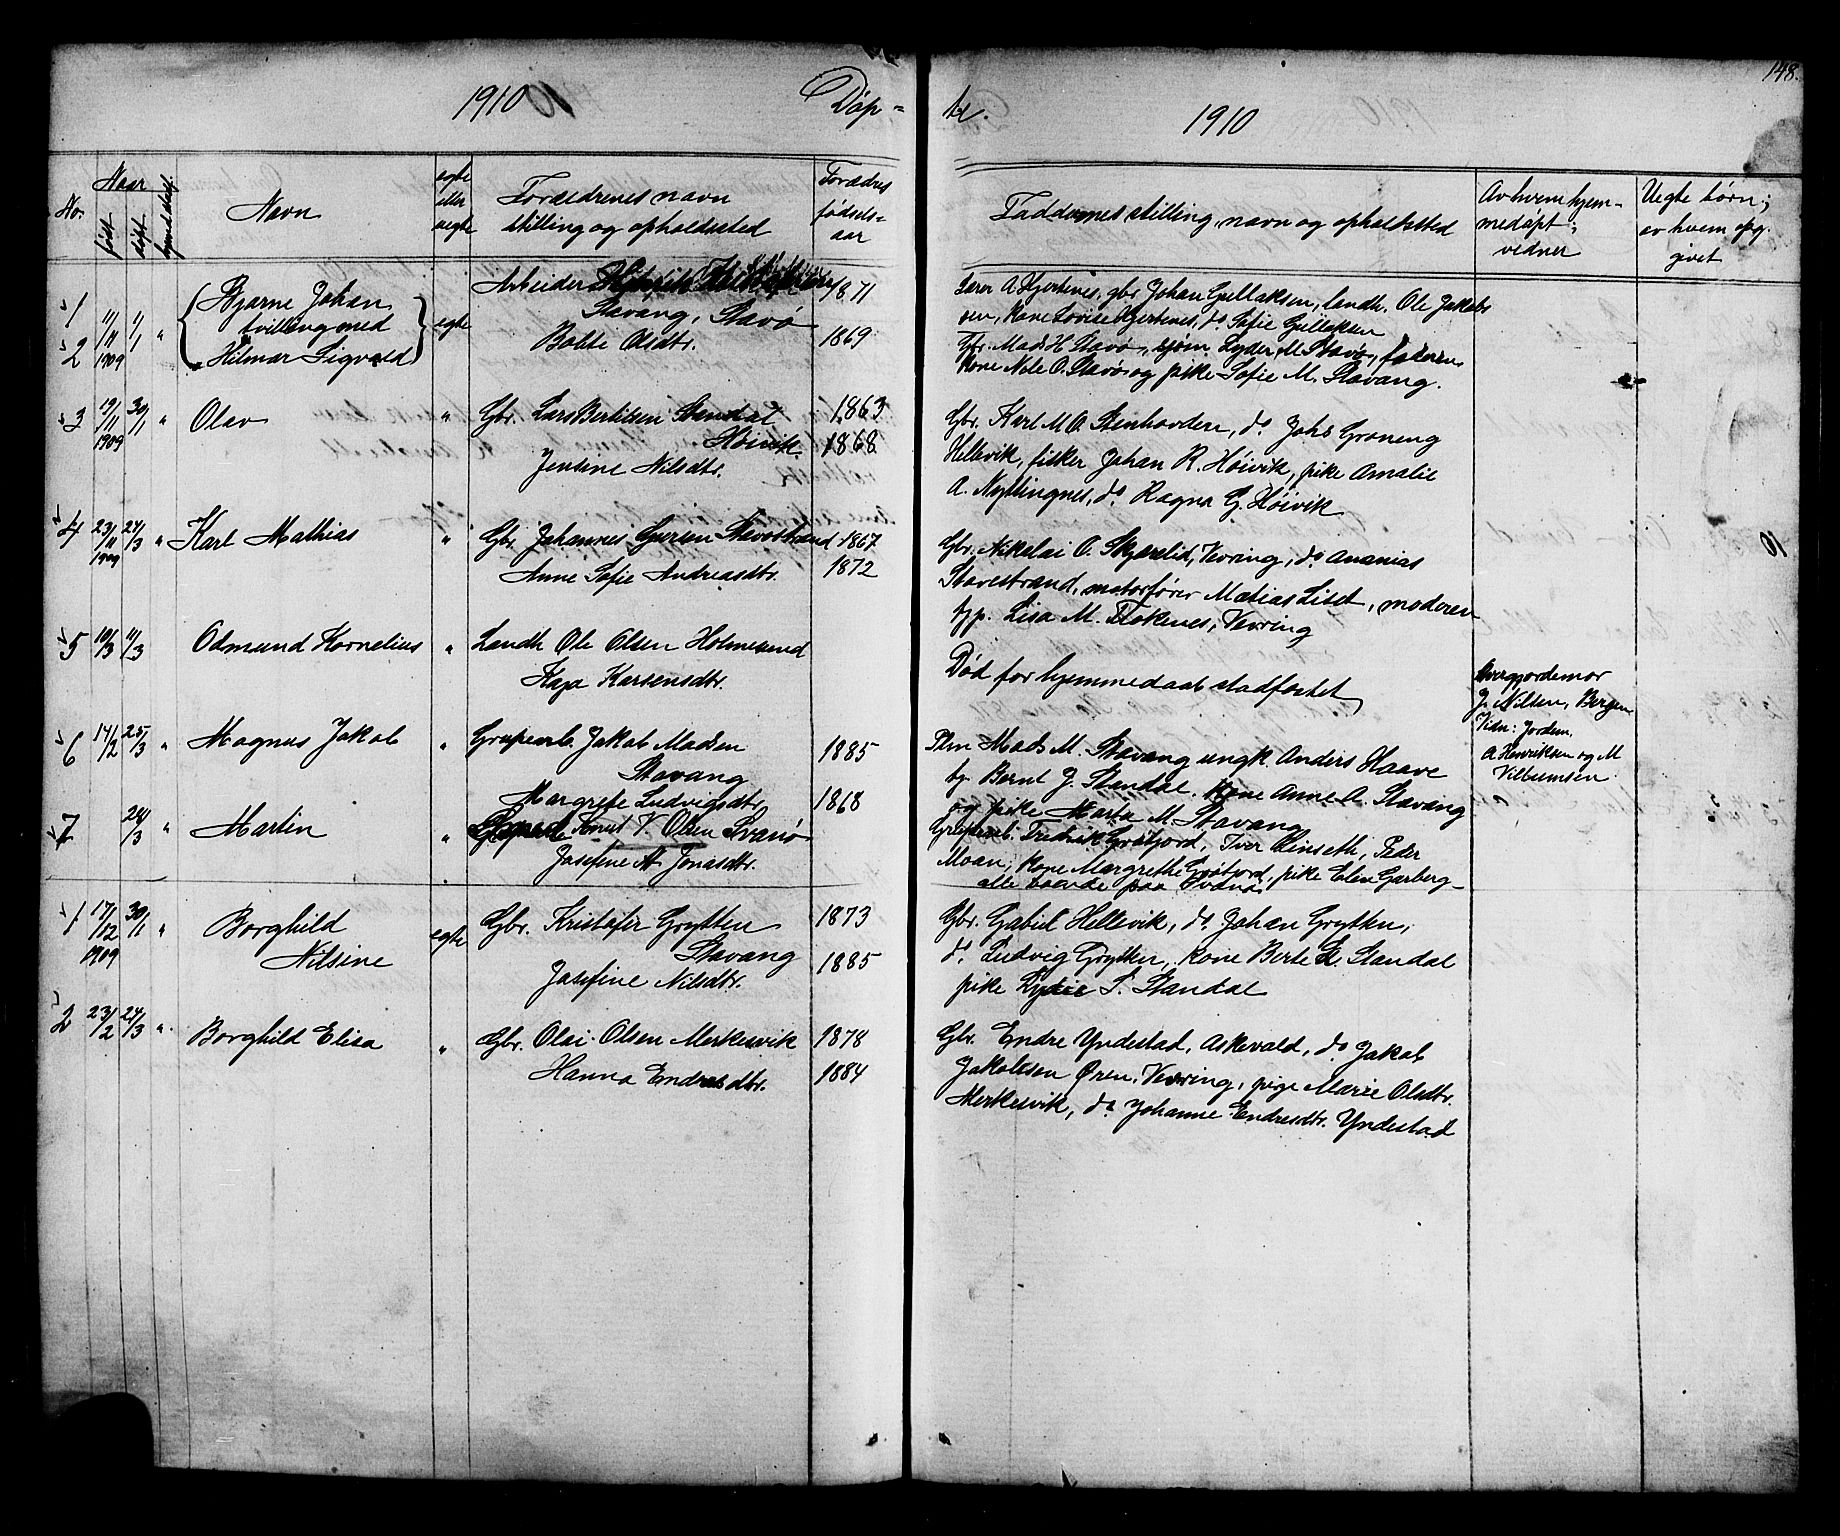 148.
1910
Døp=
te.
1910
No.
Naar
født
døpt
Navn
egte
eller
uegte
Forældrenes navn
stilling og opholdssted
Forældres
fødsels=
aar
Faddernes stilling, navn og opholdssted
Av hvem hjem=
medøpt,
vidner
Uegte børn;
av hvem opg.
givet
1
2
11/11
1909
1/1
"
Bjarne Johan
tvilling med
Hilmar Sigvald
egte
Arbeider
Stavang, Stavø
Bolte Olsdtr.
1871
1869
Lærer A. Hjertenes, gbr. Johan Gullaksen, landh. Ole Jakob=
sen, kone Lovise Hjertenes, do Sofie Gullaksen
Gbr. Mads H. Stavø, sjøm. Lyder M. Stavø, faderen
kone Nele O. Stavø og pike Sofie M. Stavang.
3
19/11
1909
30/1
"
Olav
"
Gbr. Lars Bertilsen Standal
Høivik
Jensine Nilsdtr.
1863
1868
Gbr. Karl M. O. Stenhovden, do Johs Grøneng
Hellevik, fisker Johan R. Høivik, pike Amalie
A. Nyttingnes, do Ragna G. Høivik
4
23/11
1909
24/3
"
Karl Mathias
"
Gbr. Johannes Stavøstrand
Anne Sofie Andreasdtr.
1867
1872
Gbr. Nikolai O. Skjærlid, Vevring, do Ananias
Stavøstrand, motorfører Matias Liset, moderen
Lisa M. Flokenes, Vevring
5
10/3
11/3
Odmund Kornelius
"
Landh Ole Olsen Holmesund
Kaja Karsensdtr.
Død før hjemmedaab stadfæstet
Avergjordemor
J. Nilsen, Bergen
Vidn: Jordem.
A Henriksen og M
Vilhumsen
6
14/2
25/3
"
Magnus Jakob
"
Grubearb. Jakob Madsen
Stavang
Margrete Ludvigsdtr.
1885
1868
Mads M. Stavang ungk. Anders Haave
Bernt J. Standal, kone Anne A. Stavang
og pike Marta M. Stavang
7
24/3
"
Martin
"
Knut V. Olsen Svanø
Josefine A Jonasdtr.
Grubearb. Fredrik Grøtfjord, Iver Rinseth, Peder
Moan, kone Margrethe Grøtfjord, pike Elen Garberg
alle boende paa Svanø
1
17/12
1909
30/1
"
Borghild
Nilsine
egte
Gbr. Kristofer Grytten
Stavang
Josefine Nilsdtr.
1873
1885
Gbr. Gabriel Hellevik, do Johan Grytten,
do Ludvig Grytten, kone Berte E. Standal
pike Lydie S. Standal
2
23/2
24/3
"
Borghild Elisa
"
Gbr. Olai Olsen Merkesvik
Hanna Endresdtr.
1878
1884
Gbr. Endre Yndestad, Askevold, do Jakob
Jakobsen Øren, Vevring, pige Marie Olsdtr.
Merkesvik, do Johanne Endresdtr. Yndestad